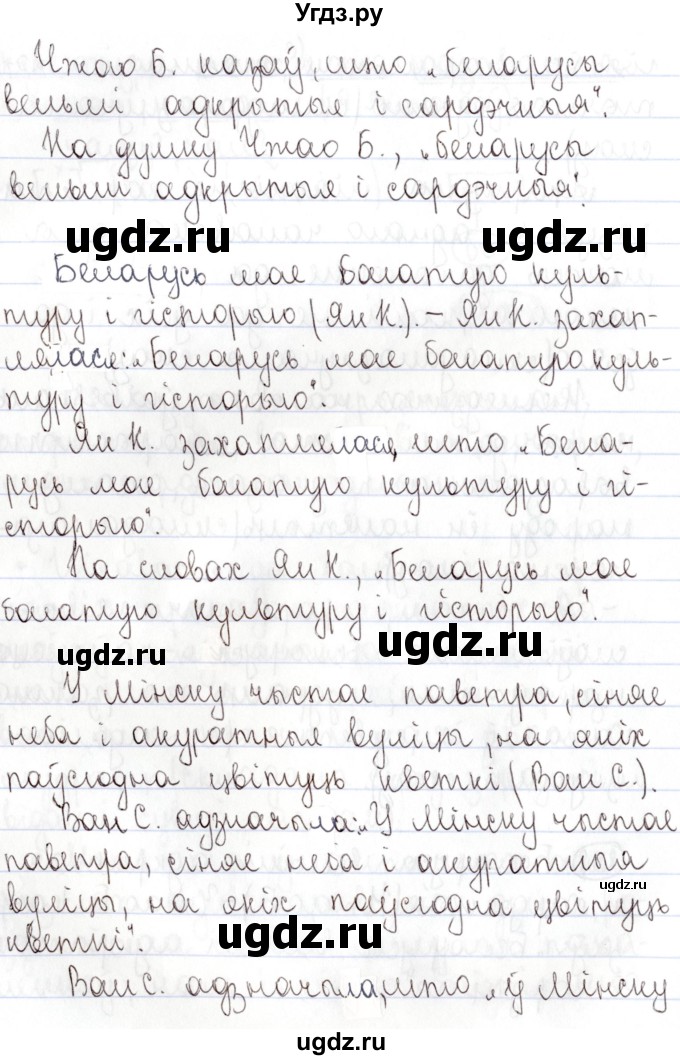 Угдз.ру
Чжао Б. казаў, што „беларусы
вельмі адкрытыя і сардэчныя“.
На думку Чжао Б., „беларусы
вельмі адкрытыя і сардэчныя“.
ugdz.ru ugdz.ru
Беларусь мае багатую куль-
туру і гісторыю (Ян К.). – Ян К. захап-
лялася: „Беларусь мае багатую куль-
туру і гісторыю“.
Ян К. захаплялася, што „Бела-
русь мае багатую культуру і гі-
сторыю“.
На словах Ян К., „Беларусь мае
багатую культуру і гісторыю“.
ugdz.ru ugdz.ru
У Мінску чыстае паветра, сіняе
неба і акуратныя вуліцы, на якіх
паўсюдна цвітуць кветкі (Ван С.).
Ван С. адзначыла: „У Мінску чыстае
паветра, сіняе неба і акуратныя
ugdz.ru
вуліцы, на якіх паўсюдна цвітуць
кветкі“
ugdz.ru
Ван С. адзначыла, што „ў Мінску
ugdz.ru